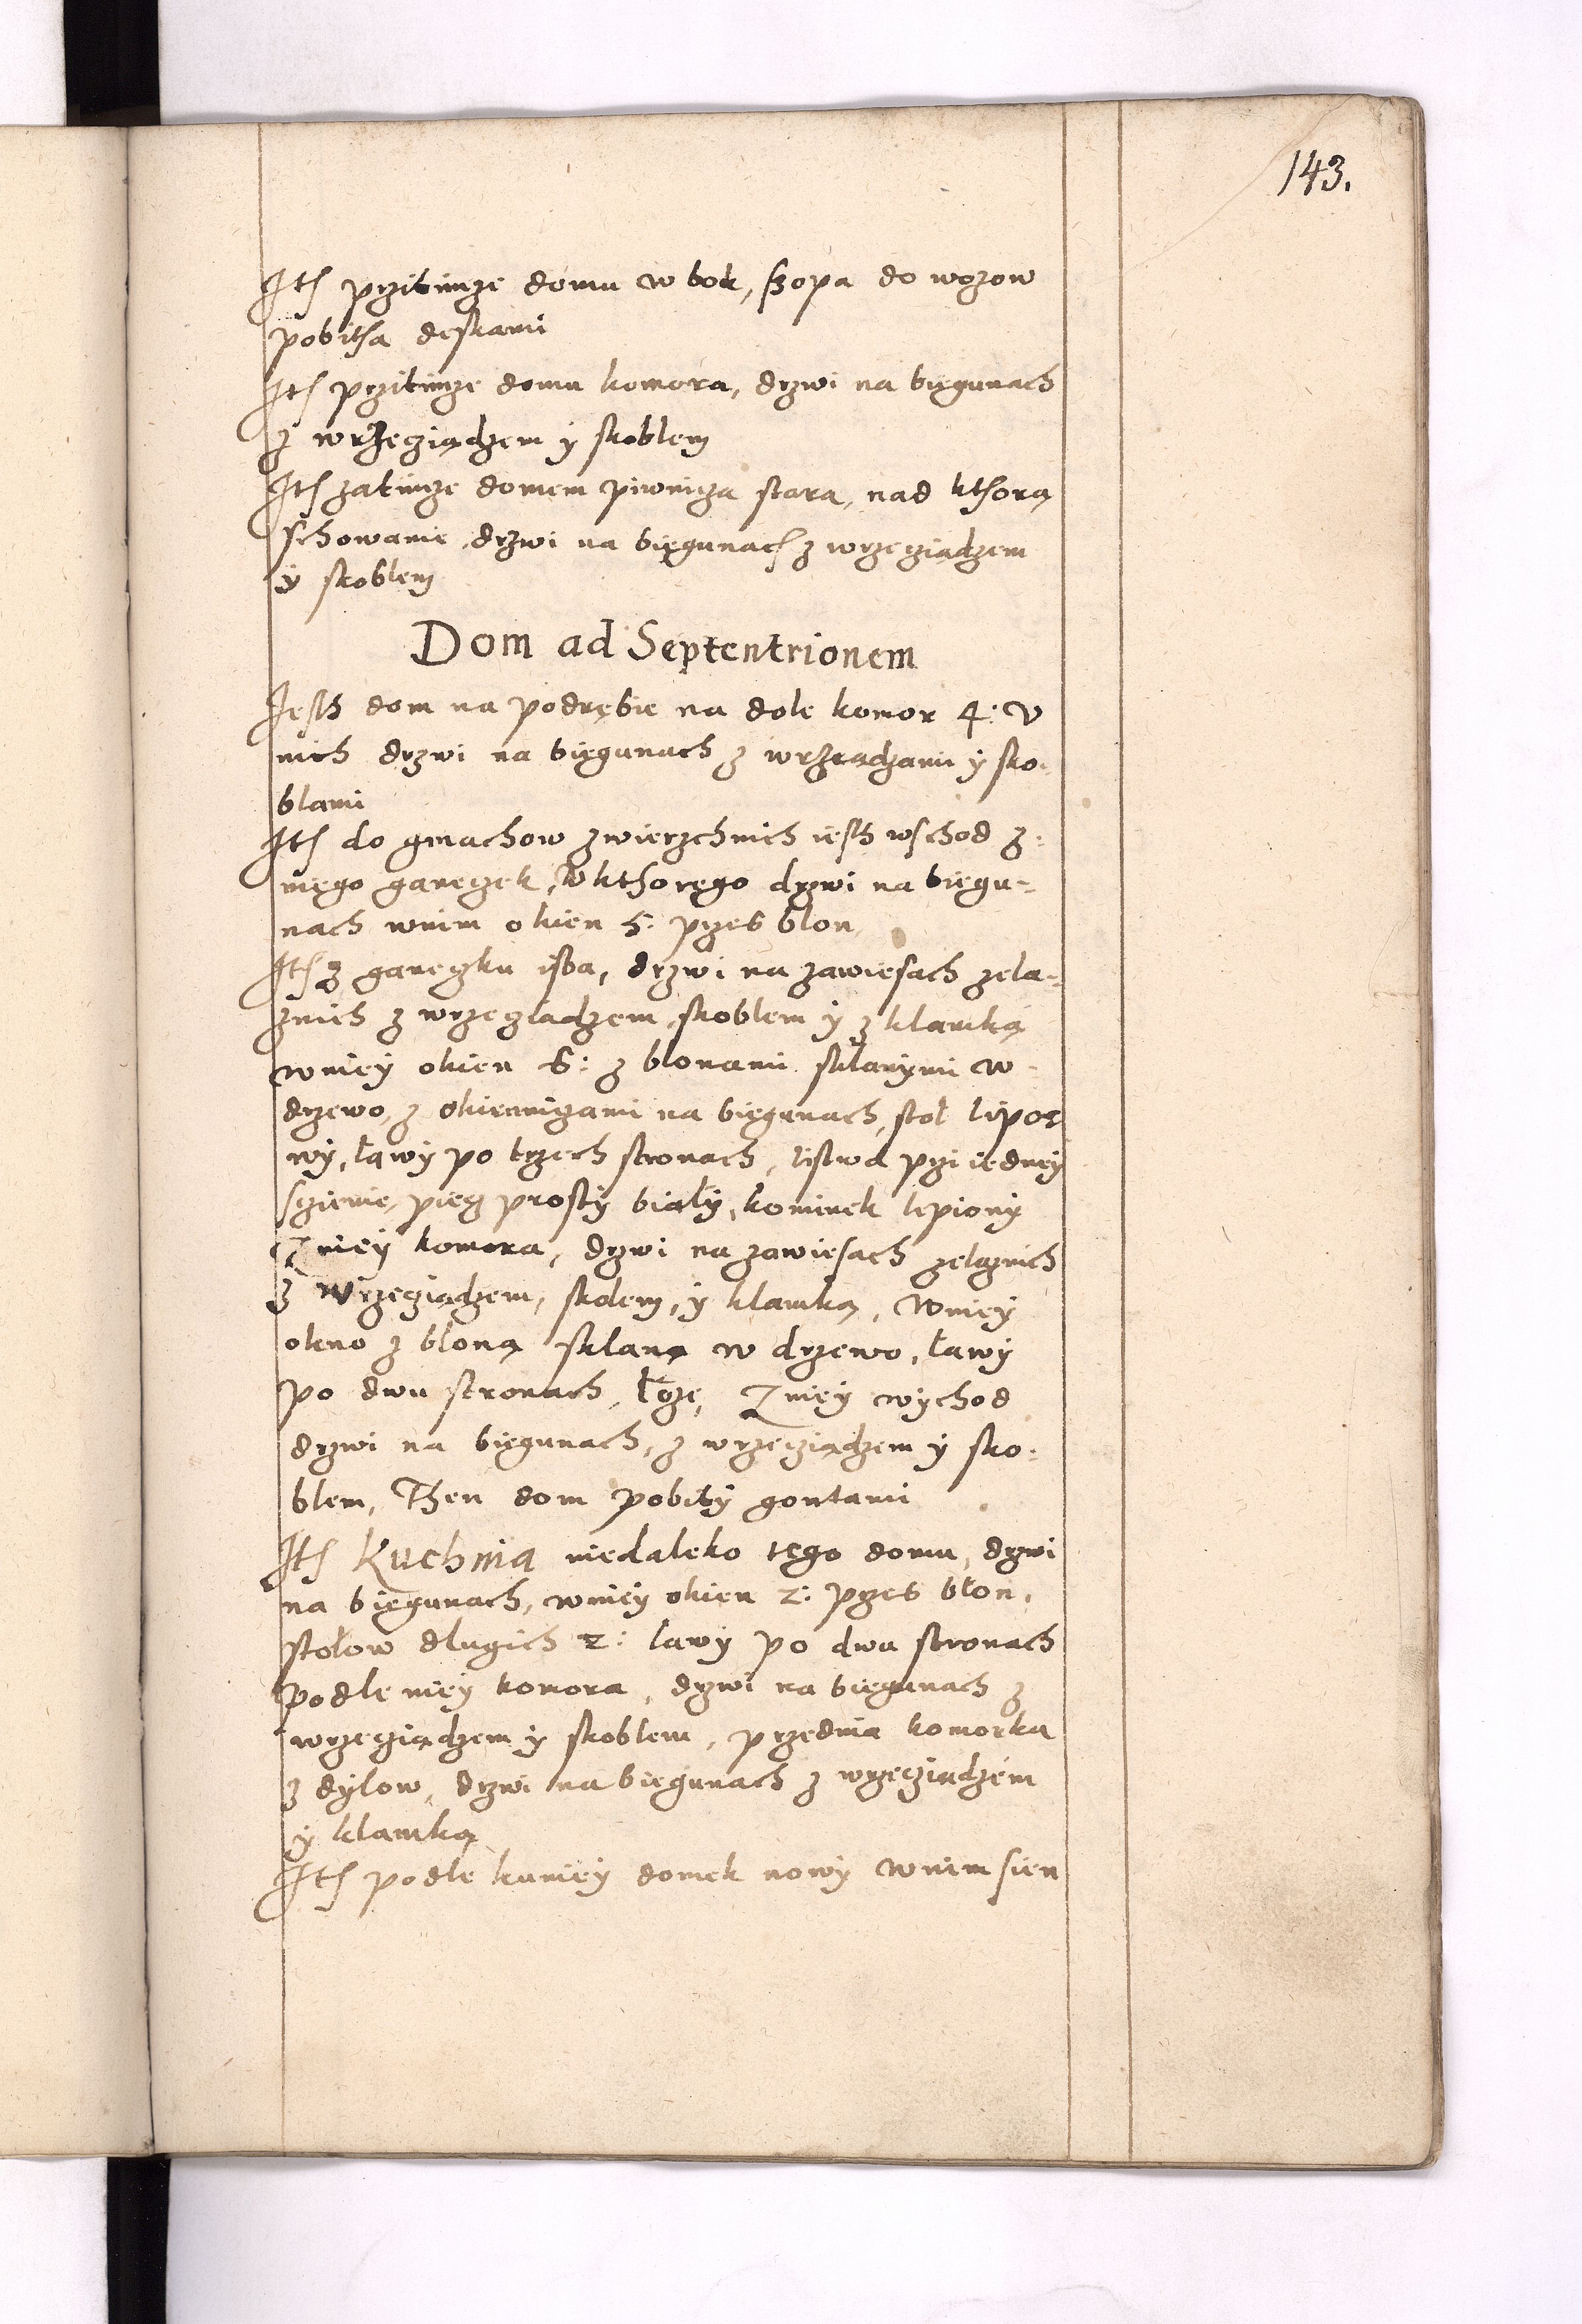 143.
Ith przitimze domu w bok, szopa do wozow
pobitha deskami
Ith przitimze domu komora, drzwi na biegunach
z wrzecziądzem y skoblem
Ith zatimze domem piwnicza stara, nad kthorą
schowanie, drzwi na biegunach z wrzecziądzem
y skoblem
Dom ad Septentrionem
Jesth dom na podrębie na dole komor 4: V
nich drzwi na biegunach z wrzeądzami y sko-
blami
Ith do gmachow zwierzchnich iesth wschod z-
niego ganeczek, v kthorego drzwi na biegu-
nach wnim okien 5: przes blon
Ith z ganeczku isba, drzwi na zawiesach zela-
znich z wrzecziądzem, skoblem y z klamką
wniey okien 6: z blonami sklanymi w-
drzewo, z okiennizami na biegunach, stoł lipo-
wy, ławy po trzech stronach, listwa przi iedney
sczienie, piecz prosty biały, kominek lepiony
Zniey komora, drzwi na zawiesach zelaznich
z wrzecziądzem, skolem, y klamką, wniey
okno z bloną sklaną w drzewo, ławy
po dwu stronach, łoze, Zniey wychod
drzwi na biegunach, z wrzecziądzem y sko-
blem, Then dom pobity gontami
Ith Kuchnia niedaleko tego domu, drzwi
na biegunach, wniey okien 2: przes błon,
stołow dlugich 2: lawy po dwu stronach
podle niey komora, drzwi na biegunach z
wrzecziądzem y skoblem, przednia komorka
z dylow, drzwi na biegunach z wrzecziądzem
y klamką
Ith podle kuniey domek nowy wnim sien